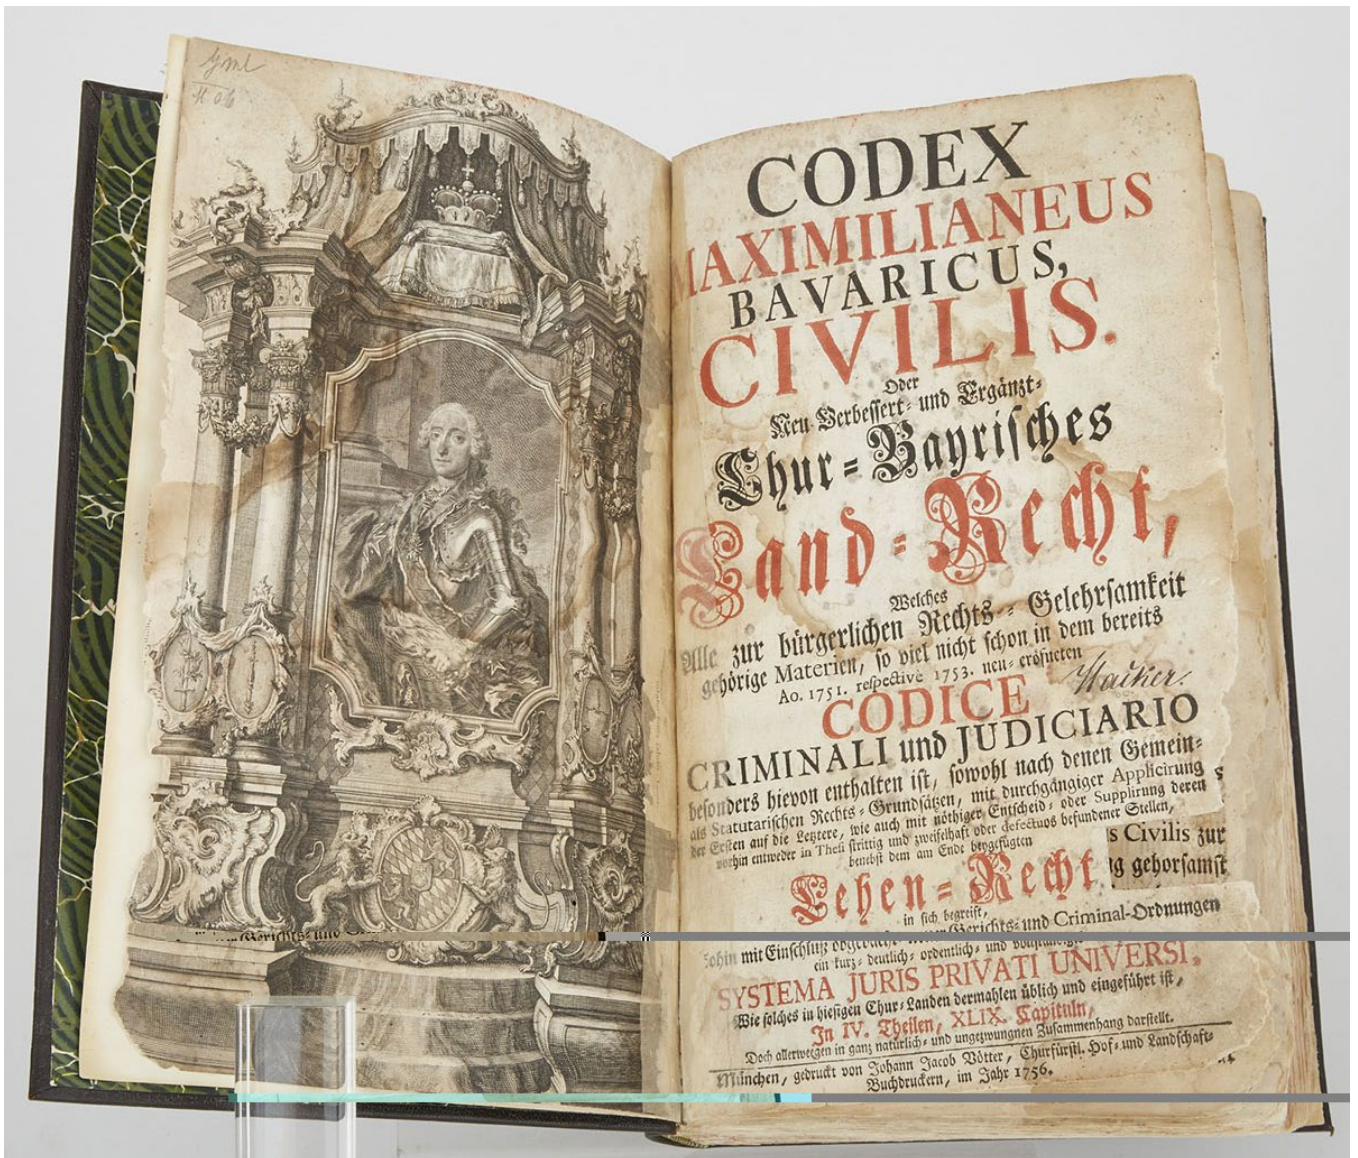 CODEX
MAXIMILIANEUS
BAVARICUS,
CIVILIS.
Oder
Neu Verbessert- und Ergänzt-
Chur-Bayrisches
Land-Recht,
Welches
Alle zur bürgerlichen Rechts-Gelehrsamkeit
gehörige Materien, so viel nicht schon in dem bereits
Ao. 1751. respective 1753. neu-eröfneten
CODICE
CRIMINALI und JUDICIARIO
besonders hievon enthalten ist, sowohl nach denen Gemein-
als Statutarischen Rechts-Grundsätzen, mit durchgängiger Applicirung
der Ersten auf die Letztere, wie auch mit nöthiger Entscheid- oder Supplirung deren
vorhin entweder in Thesi strittig und zweifelhaft oder defectuos befundener Stellen,
benebst dem am Ende beygefügten
s Civilis zur
g gehorsamst
Lehen-Recht
in sich begreift,
Sohin mit Einschluß Gerichts- und Criminal-Ordnungen
ein kurz- deutlich- ordentlich- und
SYSTEMA JURIS PRIVATI UNIVERSI,
Wie solches in hiesigen Chur-Landen dermahlen üblich und eingeführt ist,
In IV. Theilen, XLIX. Kapituln,
Doch allerwegen in ganz natürlich- und ungezwungnen Zusammenhang darstellt.
München, gedruckt von Johann Jacob Vötter, Churfürstl. Hof- und Landschaft-
Buchdruckern, im Jahr 1756.